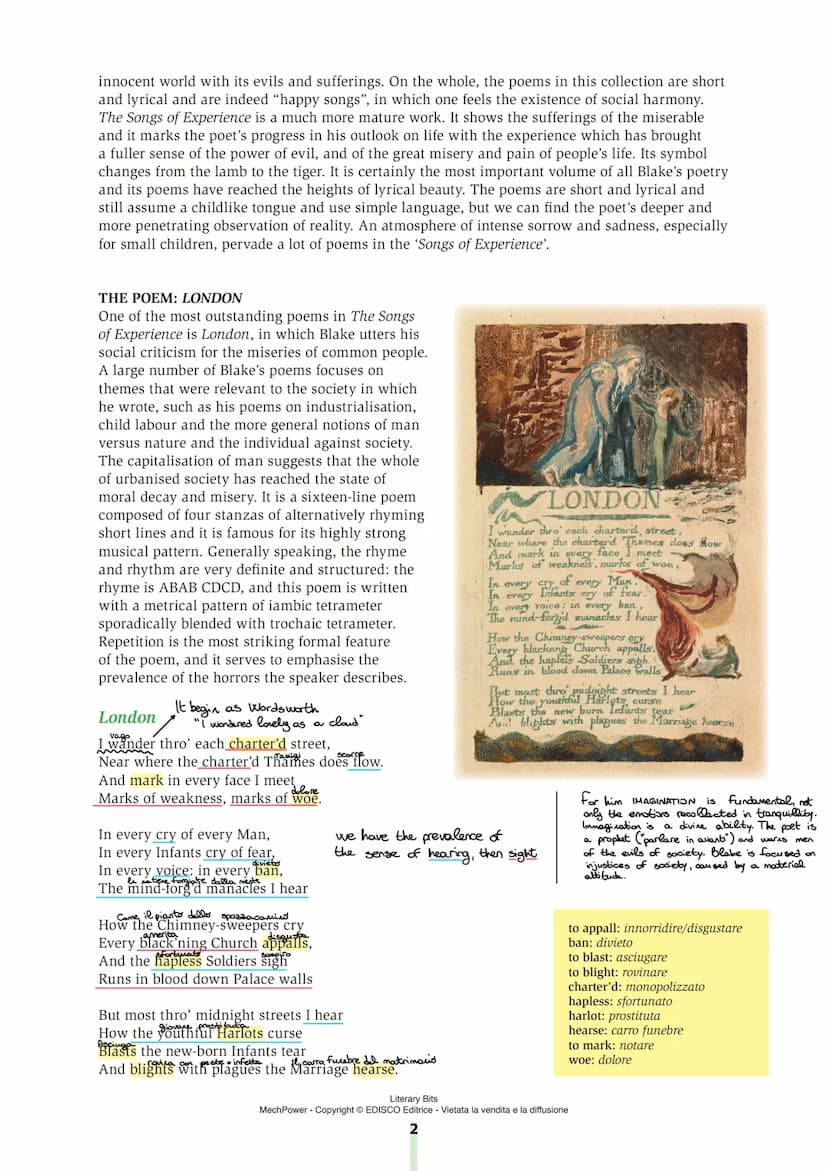 innocent world with its evils and sufferings. On the whole, the poems in this collection are short
and lyrical and are indeed “happy songs”, in which one feels the existence of social harmony.
The Songs of Experience is a much more mature work. It shows the sufferings of the miserable
and it marks the poet’s progress in his outlook on life with the experience which has brought
a fuller sense of the power of evil, and of the great misery and pain of people’s life. Its symbol
changes from the lamb to the tiger. It is certainly the most important volume of all Blake’s poetry
and its poems have reached the heights of lyrical beauty. The poems are short and lyrical and
still assume a childlike tongue and use simple language, but we can find the poet’s deeper and
more penetrating observation of reality. An atmosphere of intense sorrow and sadness, especially
for small children, pervade a lot of poems in the ‘Songs of Experience’.
THE POEM: LONDON
One of the most outstanding poems in The Songs
of Experience is London, in which Blake utters his
social criticism for the miseries of common people.
A large number of Blake’s poems focuses on
themes that were relevant to the society in which
he wrote, such as his poems on industrialisation,
child labour and the more general notions of man
versus nature and the individual against society.
The capitalisation of man suggests that the whole
of urbanised society has reached the state of
moral decay and misery. It is a sixteen-line poem
composed of four stanzas of alternatively rhyming
short lines and it is famous for its highly strong
musical pattern. Generally speaking, the rhyme
and rhythm are very definite and structured: the
rhyme is ABAB CDCD, and this poem is written
with a metrical pattern of iambic tetrameter
sporadically blended with trochaic tetrameter.
Repetition is the most striking formal feature
of the poem, and it serves to emphasise the
prevalence of the horrors the speaker describes.
LONDON
I wander thro' each charter'd street,
Near where the charter'd Thames does flow
And mark in every face I meet
Marks of weakness, marks of woe.
In every cry of every Man,
In every Infants cry of fear,
In every voice: in every ban,
The mind-forg'd manacles I hear
How the Chimney-sweepers cry
Every blackning Church appalls,
And the hapless Soldiers sigh
Runs in blood down Palace walls
But most thro' midnight streets I hear
How the youthful Harlots curse
Blasts the new born Infants tear
And blights with plagues the Marriage hearse
It begin as Wordsworth
"I wandered lonely as a cloud"
London
vago
I wander thro’ each charter’d street,
Tamigi scorre
Near where the charter’d Thames does flow.
And mark in every face I meet
dolore
Marks of weakness, marks of woe.
In every cry of every Man,
In every Infants cry of fear,
divieto
In every voice: in every ban,
The mind-forg’d manacles I hear
we have the prevalence of
the sense of hearing, then sight
For him IMAGINATION is fundamental, not
only the emotions recollected in tranquillity.
Immagination is a divine ability. The poet is
a prophet ("parlare in avanti") and warns men
of the evils of society. Blake is focused on
injustices of society, caused by a material
attitude.
Come il pianto dello spazzacamino
How the Chimney-sweepers cry
disgusta
Every black’ning Church appalls,
sfortunato sospiro
And the hapless Soldiers sigh
Runs in blood down Palace walls
But most thro’ midnight streets I hear
giovane prostituta
How the youthful Harlots curse
Asciuga
Blasts the new-born Infants tear
il carro funebre del matrimonio
And blights with plagues the Marriage hearse.
to appall: innorridire/disgustare
ban: divieto
to blast: asciugare
to blight: rovinare
charter’d: monopolizzato
hapless: sfortunato
harlot: prostituta
hearse: carro funebre
to mark: notare
woe: dolore
Literary Bits
MechPower - Copyright © EDISCO Editrice - Vietata la vendita e la diffusione
2